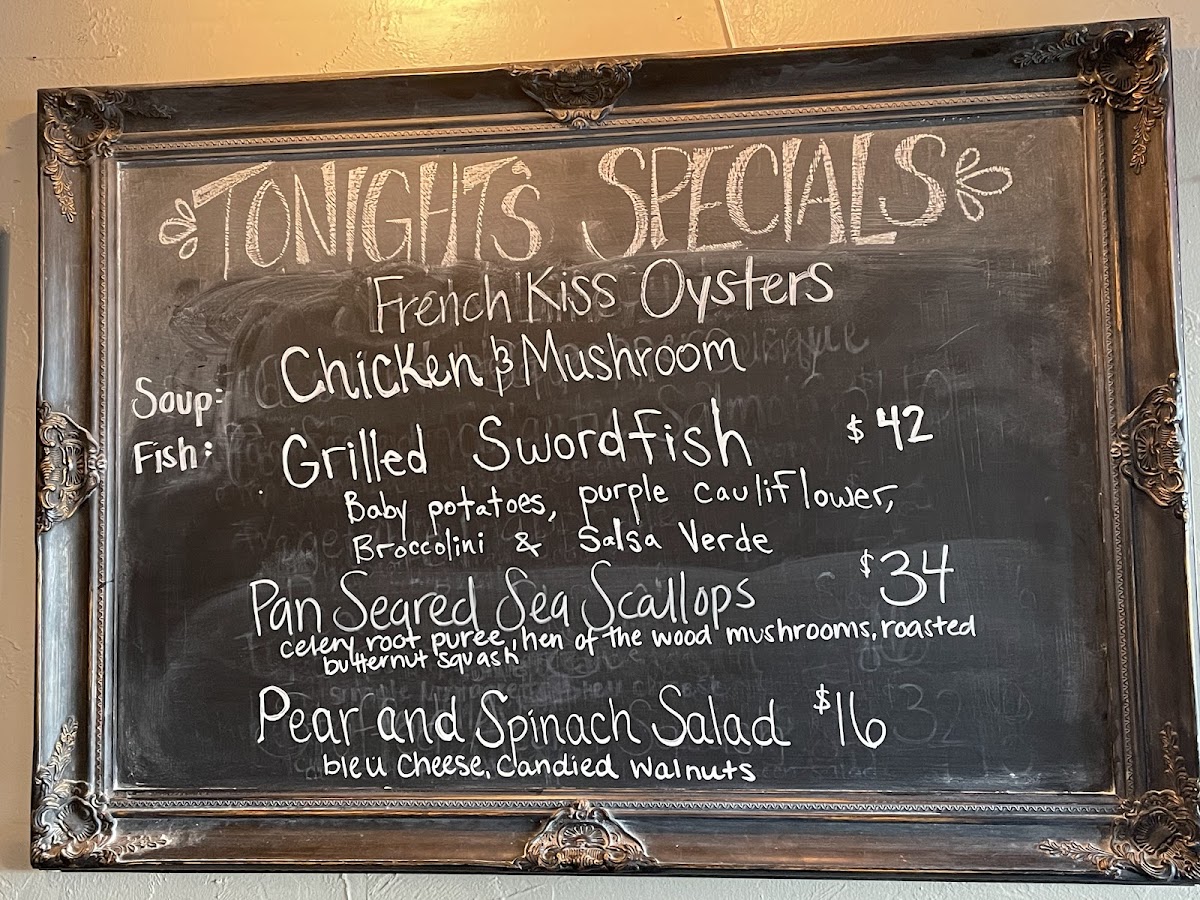 TONIGHT'S SPECIALS
French Kiss Oysters
Soup: Chicken & Mushroom
Fish: Grilled Swordfish $42
Baby potatoes, purple cauliflower,
Broccolini & Salsa Verde
Pan Seared Sea Scallops $34
celery root puree, hen of the wood mushrooms, roasted
butternut squash
Pear and Spinach Salad $16
bleu cheese, candied walnuts